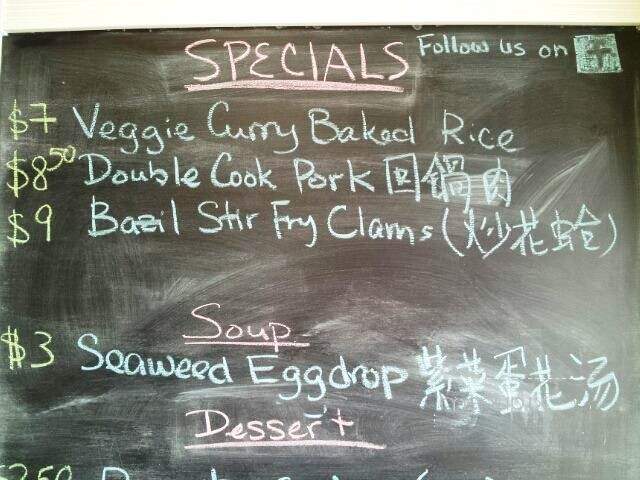 SPECIALS
Follow us on
$7 Veggie Curry Baked Rice
$8.50 Double Cook Pork 回鍋肉
$9 Bazil Stir Fry Clams (炒花蛤)
Soup
$3 Seaweed Eggdrop 紫菜蛋花汤
Dessert